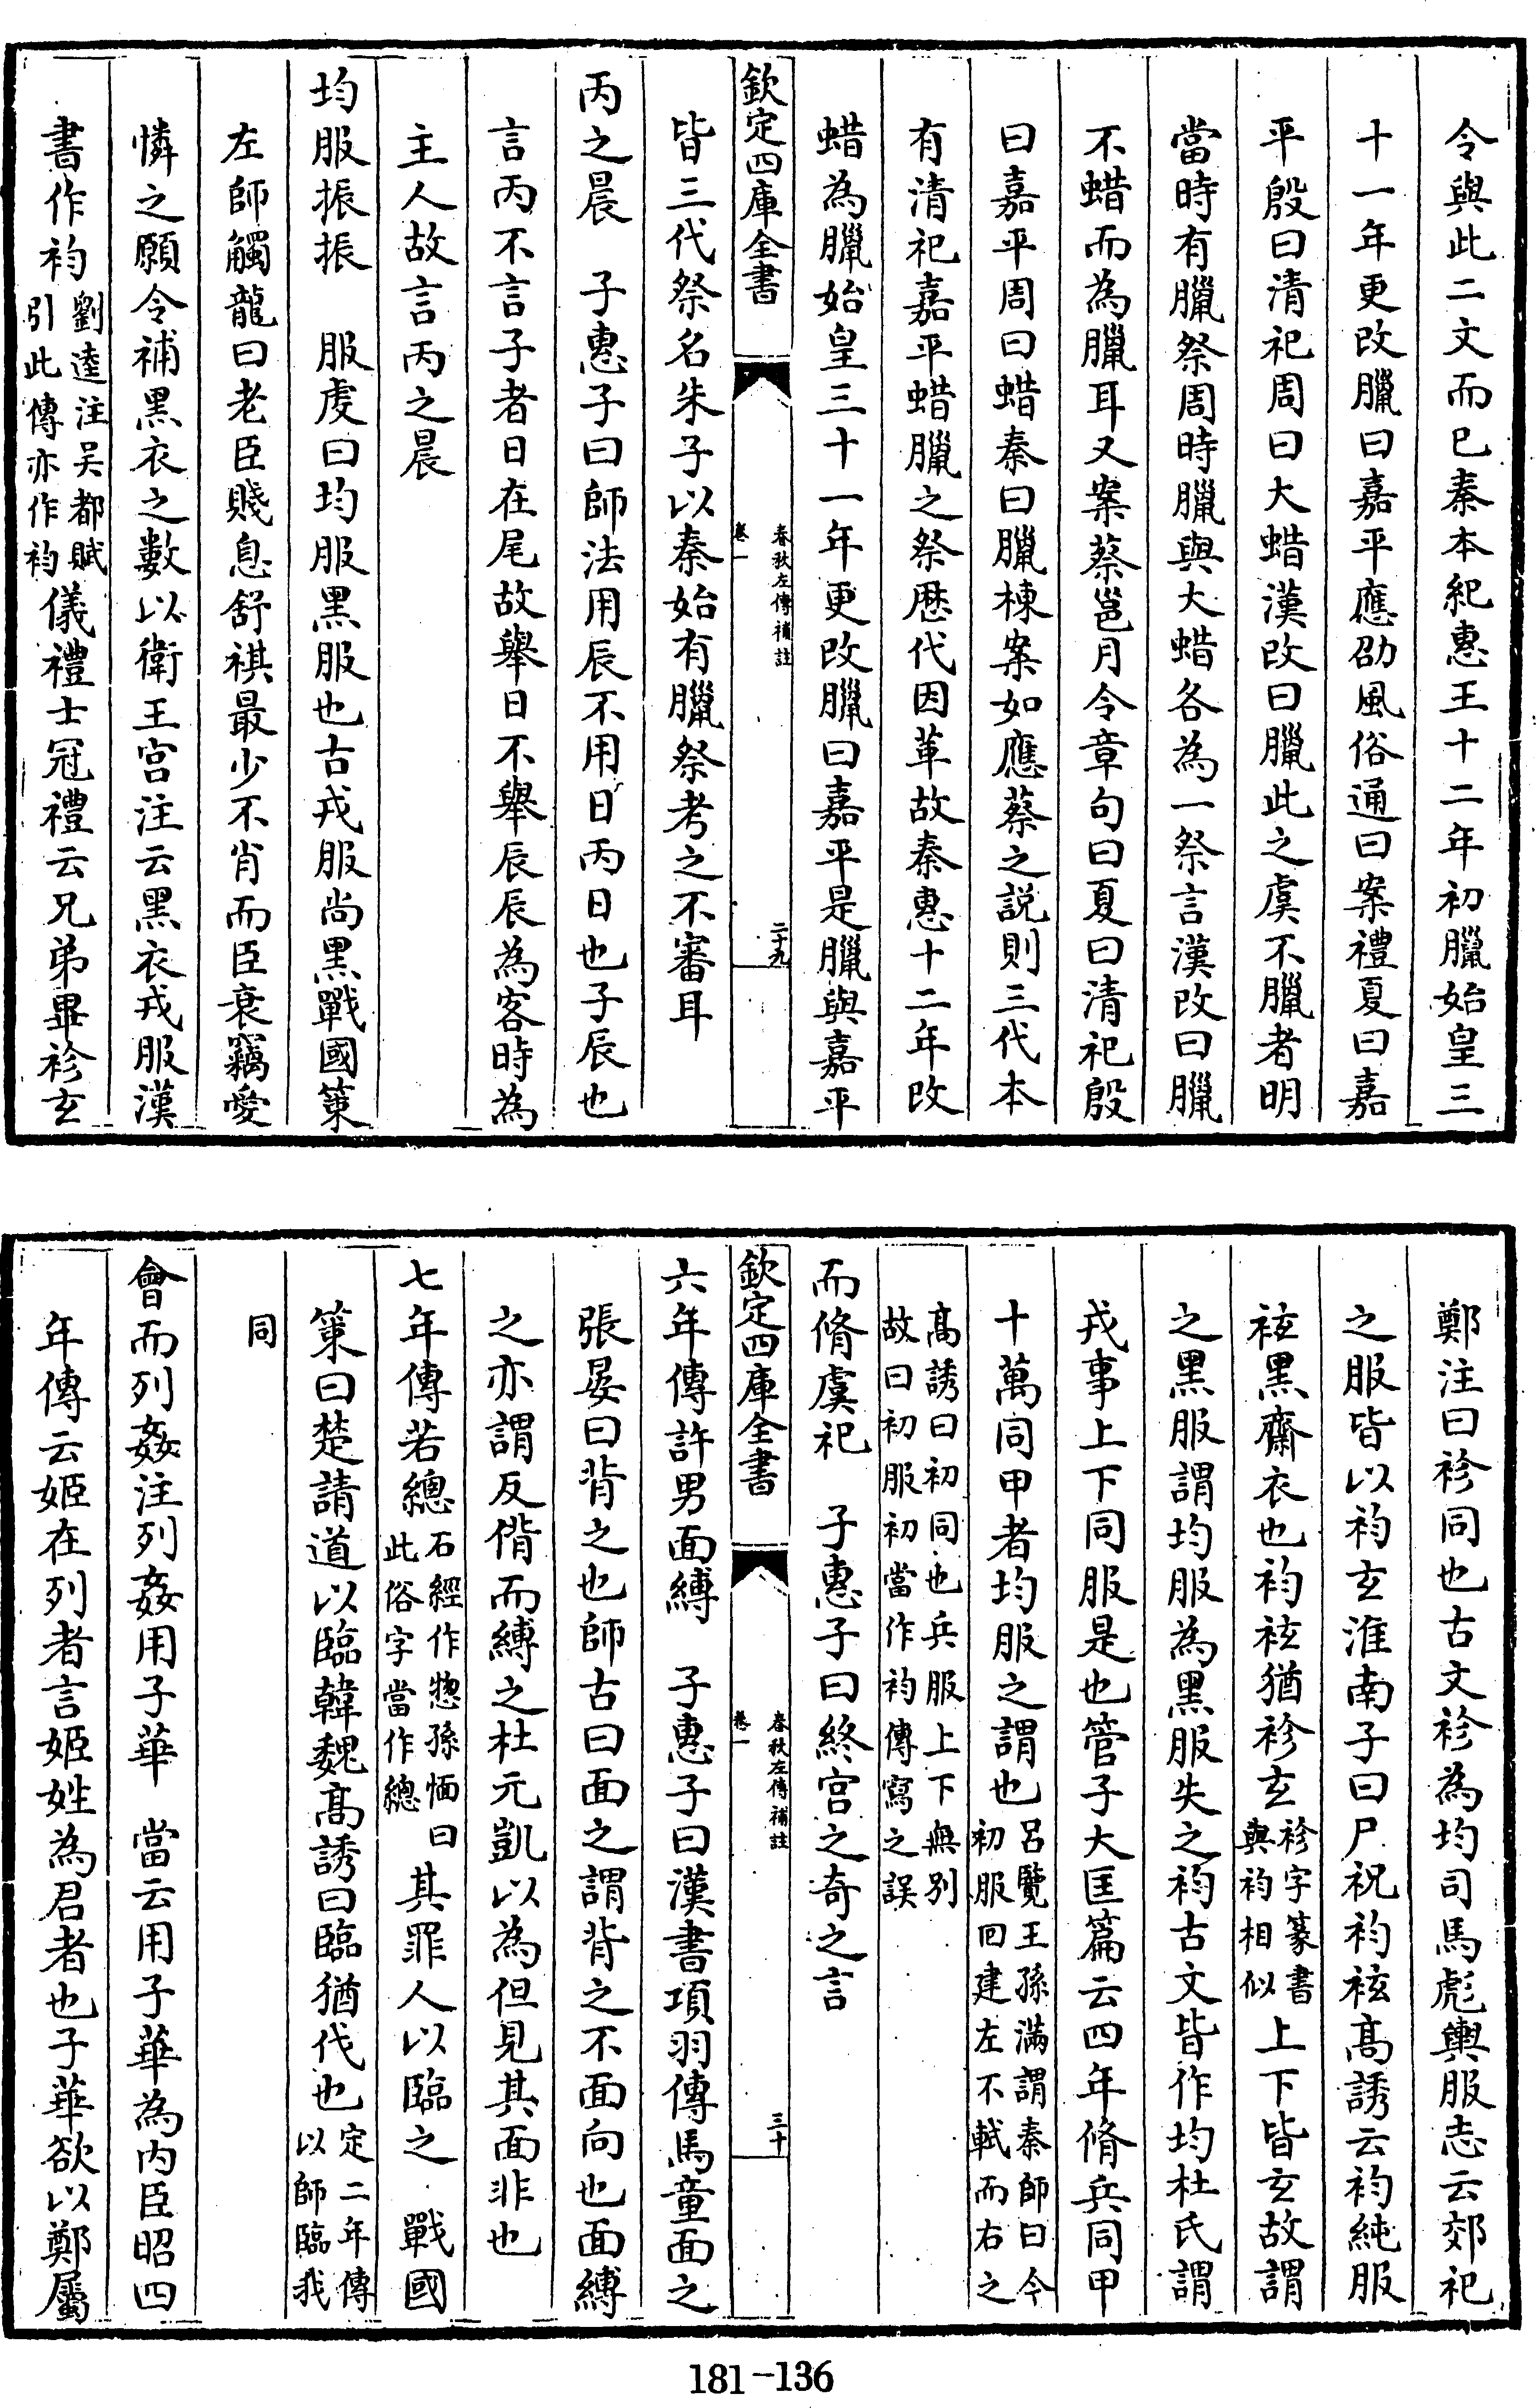 令與此二文而已秦本紀惠王十二年初臘始皇三
十一年更改臘曰嘉平應劭風俗通曰案禮夏曰嘉
平殷曰清祀周曰大蜡漢改曰臘此之虞不臘者明
當時有臘祭周時臘與大蜡各為一祭言漢改曰臘
不蜡而為臘耳又案蔡邕月令章句曰夏曰清祀殷
曰嘉平周曰蜡秦曰臘棟案如應蔡之說則三代本
有清祀嘉平蜡臘之祭歴代因革故秦惠十二年改
蜡為臘始皇三十一年更改臘曰嘉平是臘與嘉平
欽定四庫全書
春秋左傳補註
卷一
二十九
皆三代祭名朱子以秦始有臘祭考之不審耳
丙之晨 子惠子曰師法用辰不用日丙日也子辰也
言丙不言子者日在尾故舉日不舉辰辰為客時為
主人故言丙之晨
均服振振 服虔曰均服黑服也古戎服尚黑戰國策
左師觸龍曰老臣賤息舒祺最少不肖而臣衰竊愛
憐之願令補黑衣之數以衛王宫注云黑衣戎服漢
書作袀劉逵注吳都賦
引此傳亦作袀儀禮士冠禮云兄弟畢袗玄
鄭注曰袗同也古文袗為均司馬彪輿服志云郊祀
之服皆以袀玄淮南子曰尸祝袀袨高誘云袀純服
袨黑齋衣也袀袨猶袗玄袗字篆書
與袀相似上下皆玄故謂
之黑服謂均服為黑服失之袀古文皆作均杜氏謂
戎事上下同服是也管子大匡篇云四年脩兵同甲
十萬同甲者均服之謂也呂覽王孫滿謂秦師曰今
初服回建左不軾而右之
高誘曰初同也兵服上下無别
故曰初服初當作袀傳寫之誤
而脩虞祀 子惠子曰終宫之奇之言
欽定四庫全書
春秋左傳補註
卷一
三十
六年傳許男面縛 子惠子曰漢書項羽傳馬童面之
張晏曰背之也師古曰面之謂背之不面向也面縛
之亦謂反偝而縛之杜元凱以為但見其面非也
七年傳若總石經作惣孫愐曰
此俗字當作總其罪人以臨之 戰國
策曰楚請道以臨韓魏高誘曰臨猶伐也定二年傳
以師臨我
同
會而列姦注列姦用子華 當云用子華為内臣昭四
年傳云姬在列者言姬姓為君者也子華欲以鄭屬
181-136